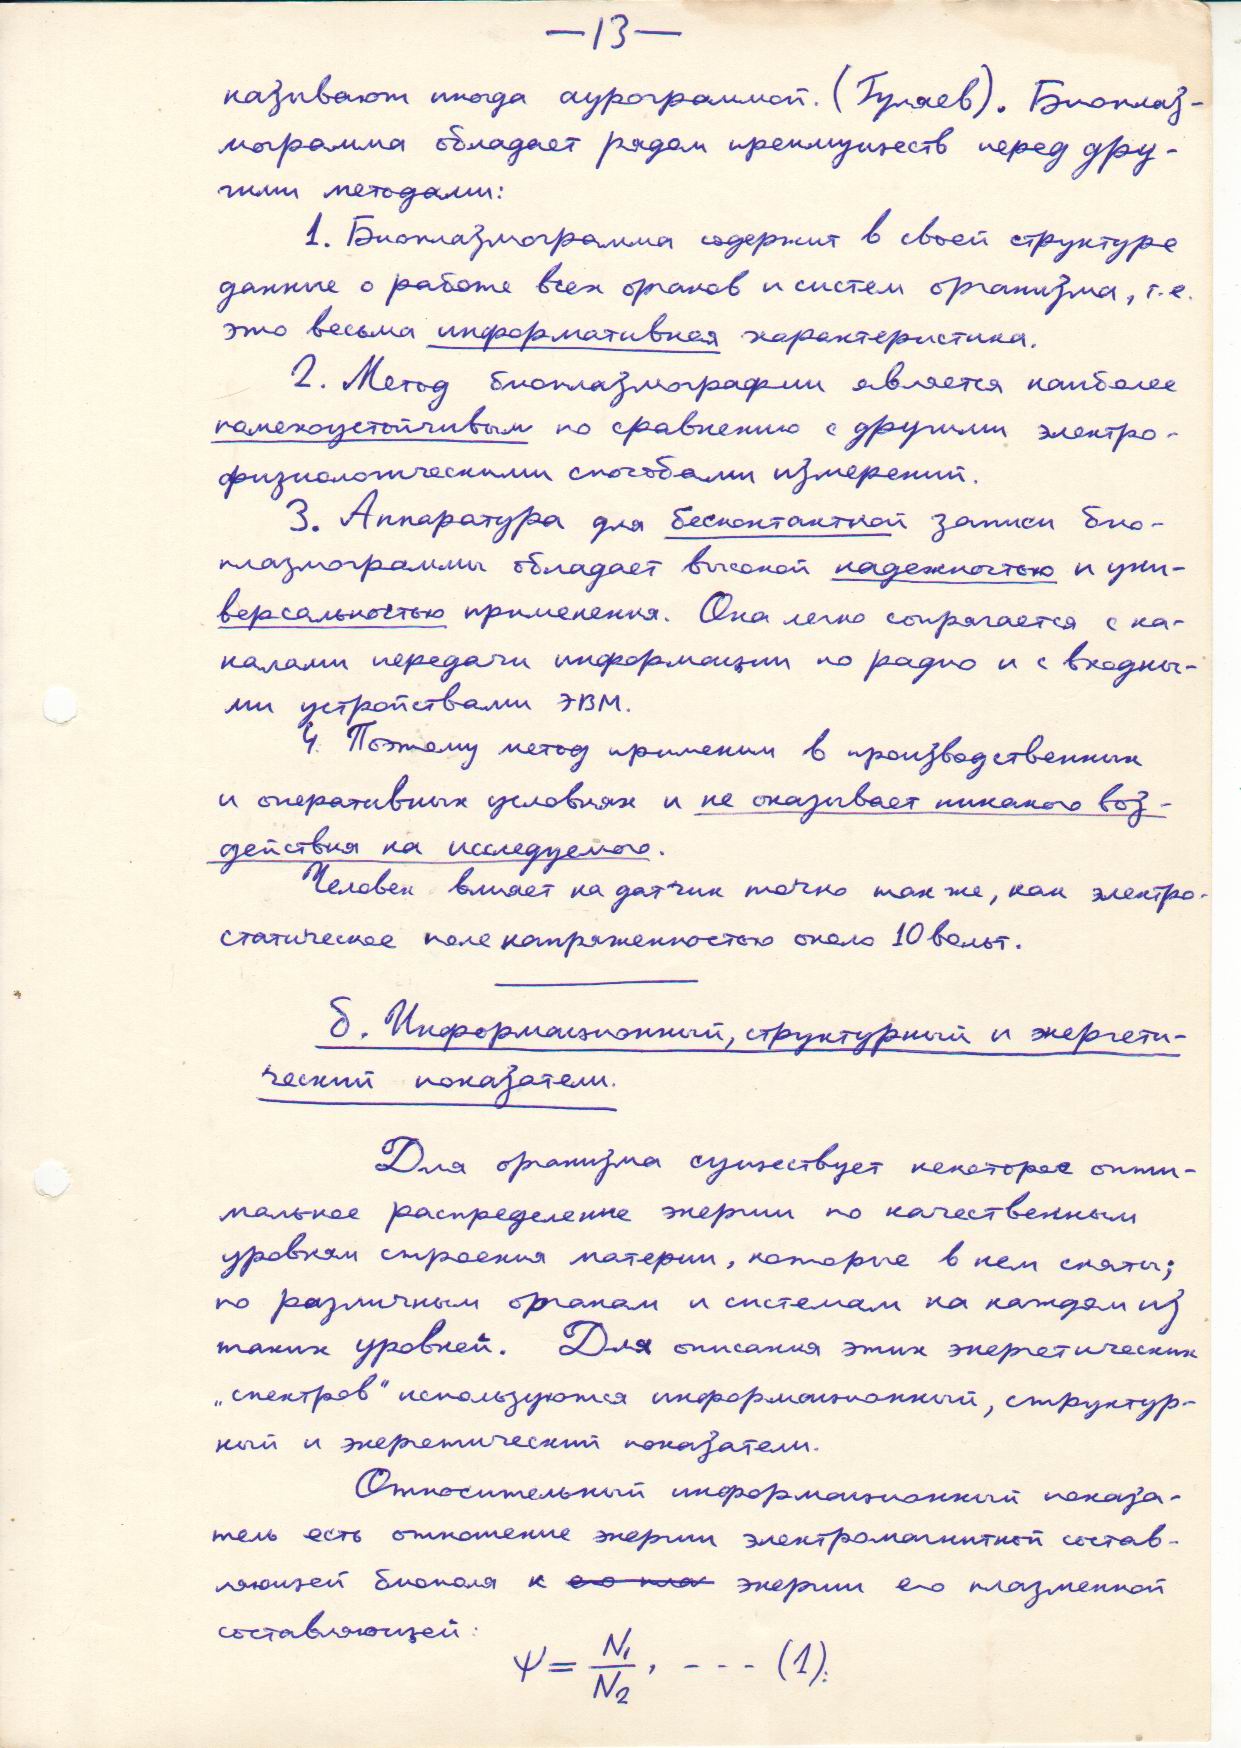 —13—
называют иногда аурограммой. (Гуляев). Биоплаз-
мограмма обладает рядом преимуществ перед дру-
гими методами:
1. Биоплазмограмма содержит в своей структуре
данные о работе всех органов и систем организма, т.е.
это весьма информативная характеристика.
2. Метод биоплазмографии является наиболее
помехоустойчивым по сравнению с другими электро-
физиологическими способами измерений.
3. Аппаратура для бесконтактной записи био-
плазмограммы обладает высокой надежностью и уни-
версальностью применения. Она легко сопрягается с ка-
налами передачи информации по радио и с входны-
ми устройствами ЭВМ.
4. Поэтому метод применим в производственных
и оперативных условиях и не оказывает никакого воз-
действия на исследуемого.
Человек влияет на датчик точно так же, как электро-
статическое поле напряженностью около 10 вольт.
б. Информационный, структурный и энергети-
ческий показатели.
Для организма существует некоторое опти-
мальное распределение энергии по качественным
уровням строения материи, которые в нем сняты;
по различным органам и системам на каждом из
таких уровней. Для описания этих энергетических
„спектров" используются информационный, структур-
ный и энергетический показатели.
Относительный информационный показа-
тель есть отношение энергии электромагнитной состав-
ляющей биополя к его пла энергии его плазменной
составляющей:
Ψ = N₁/N₂, - - - - (1):